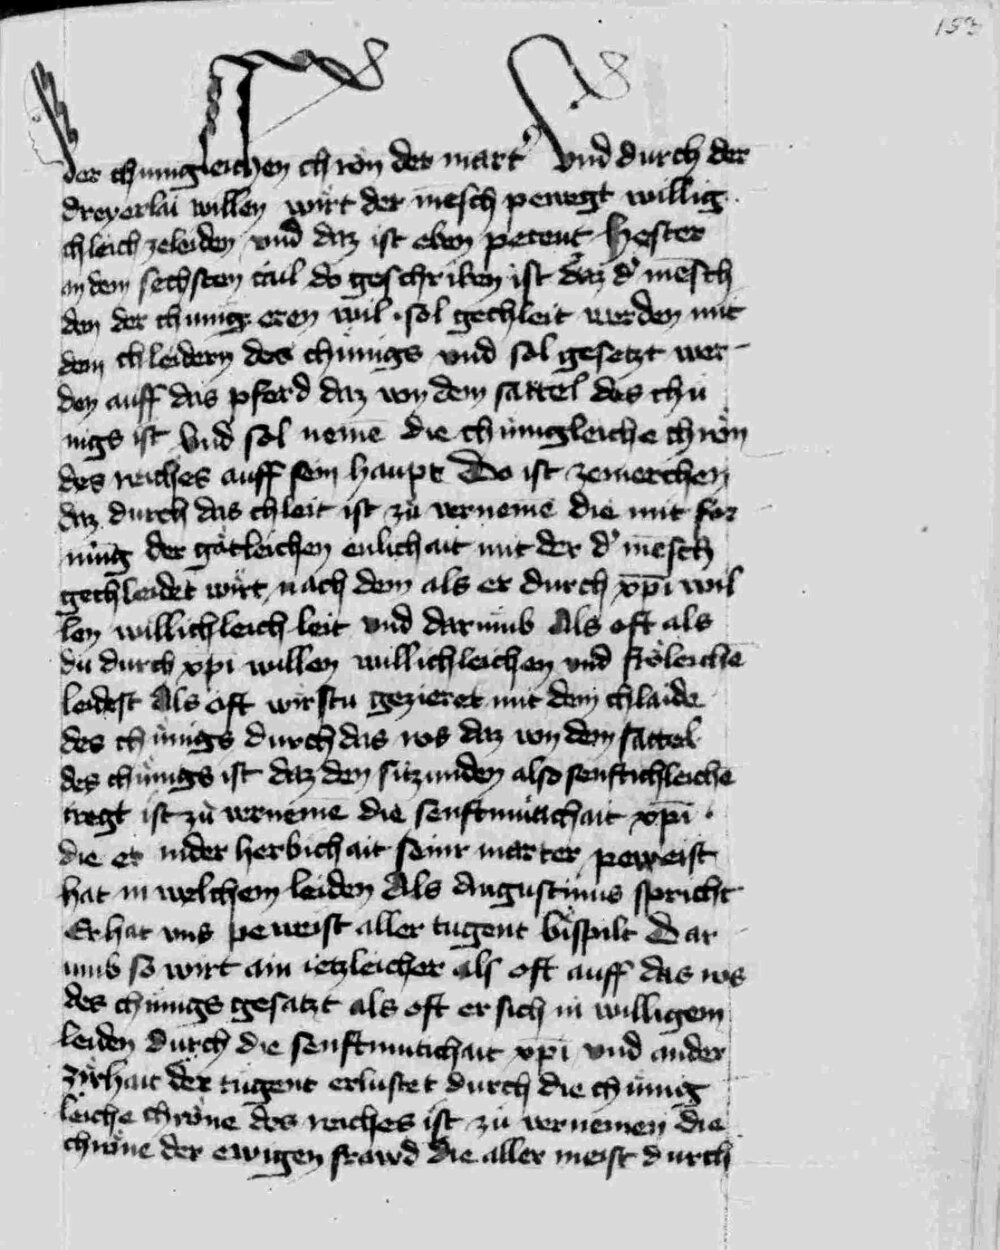 153
der chunigleichen chron der mart' Und durch der
dreyerlai willen wirt der mēsch pewegt willig
chleich zeleiden und daz ist eben petent Hester
an dem sechsten capitl do geschriben ist daz d' mēsch
den der chunig eren wil · sol gechleit werden mit
dem chleidern des chunigs und sol gesetzt wer-
den auff das pferd daz von dem sattel des chu
nigs ist Und sol nemē die chunigleiche chron
des reiches auff sein haupt Do ist zemerchen
daz durch das chleit ist zu vernemē die mit for
mung der gotleichen enlichait mit der d' mēsch
gechleidet wirt nach dem als er durch xp̄i wil
len willichleich leit und darumb Als oft als
du durch xp̄i willen willichleichen und froleichē
leidest Als oft wirstu gezieret mit dem chlaide
des chunigs durch das ros daz von dem sattel
des chunigs ist daz den sitzunden also senftichleiche
tregt ist zu vernemē die senftmutichait xp̄i ·
die er in der herbichait seinr marter peweist
hat in welchem leiden Als Augustinus spricht
Er hat uns peweist aller tugent bispilt Dar
umb so wirt ain ietzleicher als oft auff das ros
des chunigs gesatzt als oft er sich in willigem
leiden durch die senftmutichait xp̄i und ander
zirhait der tugent erlustet durch die chunig
leiche chrone des reiches ist zu vernemen die
chrone der ewigen frawd die aller meist durch